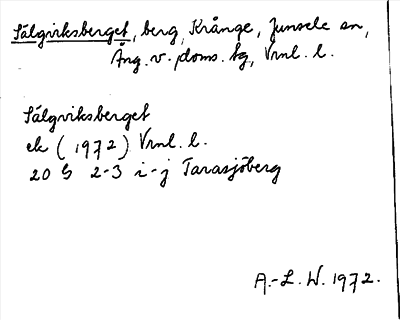 Sälgviksberget, berg, Krånge, Junsele sn,
Äng. v. doms. bg, Vrnl. l.
Sälgviksberget
ek (1972) Vrnl. l.
20 G 2-3 i-j Tarasjöberg
A.-L. W. 1972.